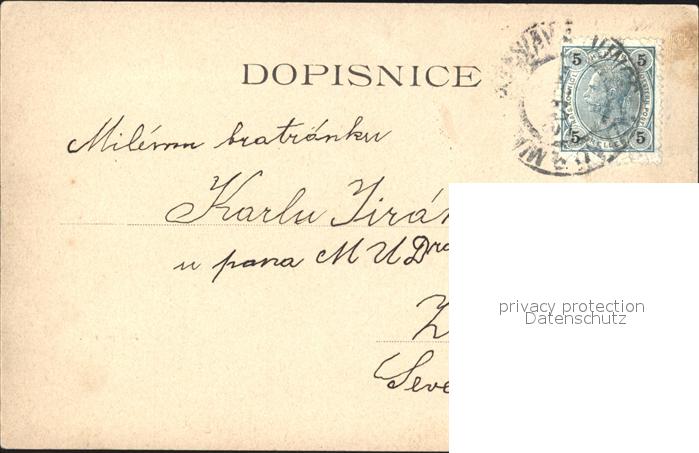 DOPISNICE
5 5
5 5
Milému bratránku
Karlu Jirán
u pana MUDra
Seve
privacy protection
Datenschutz